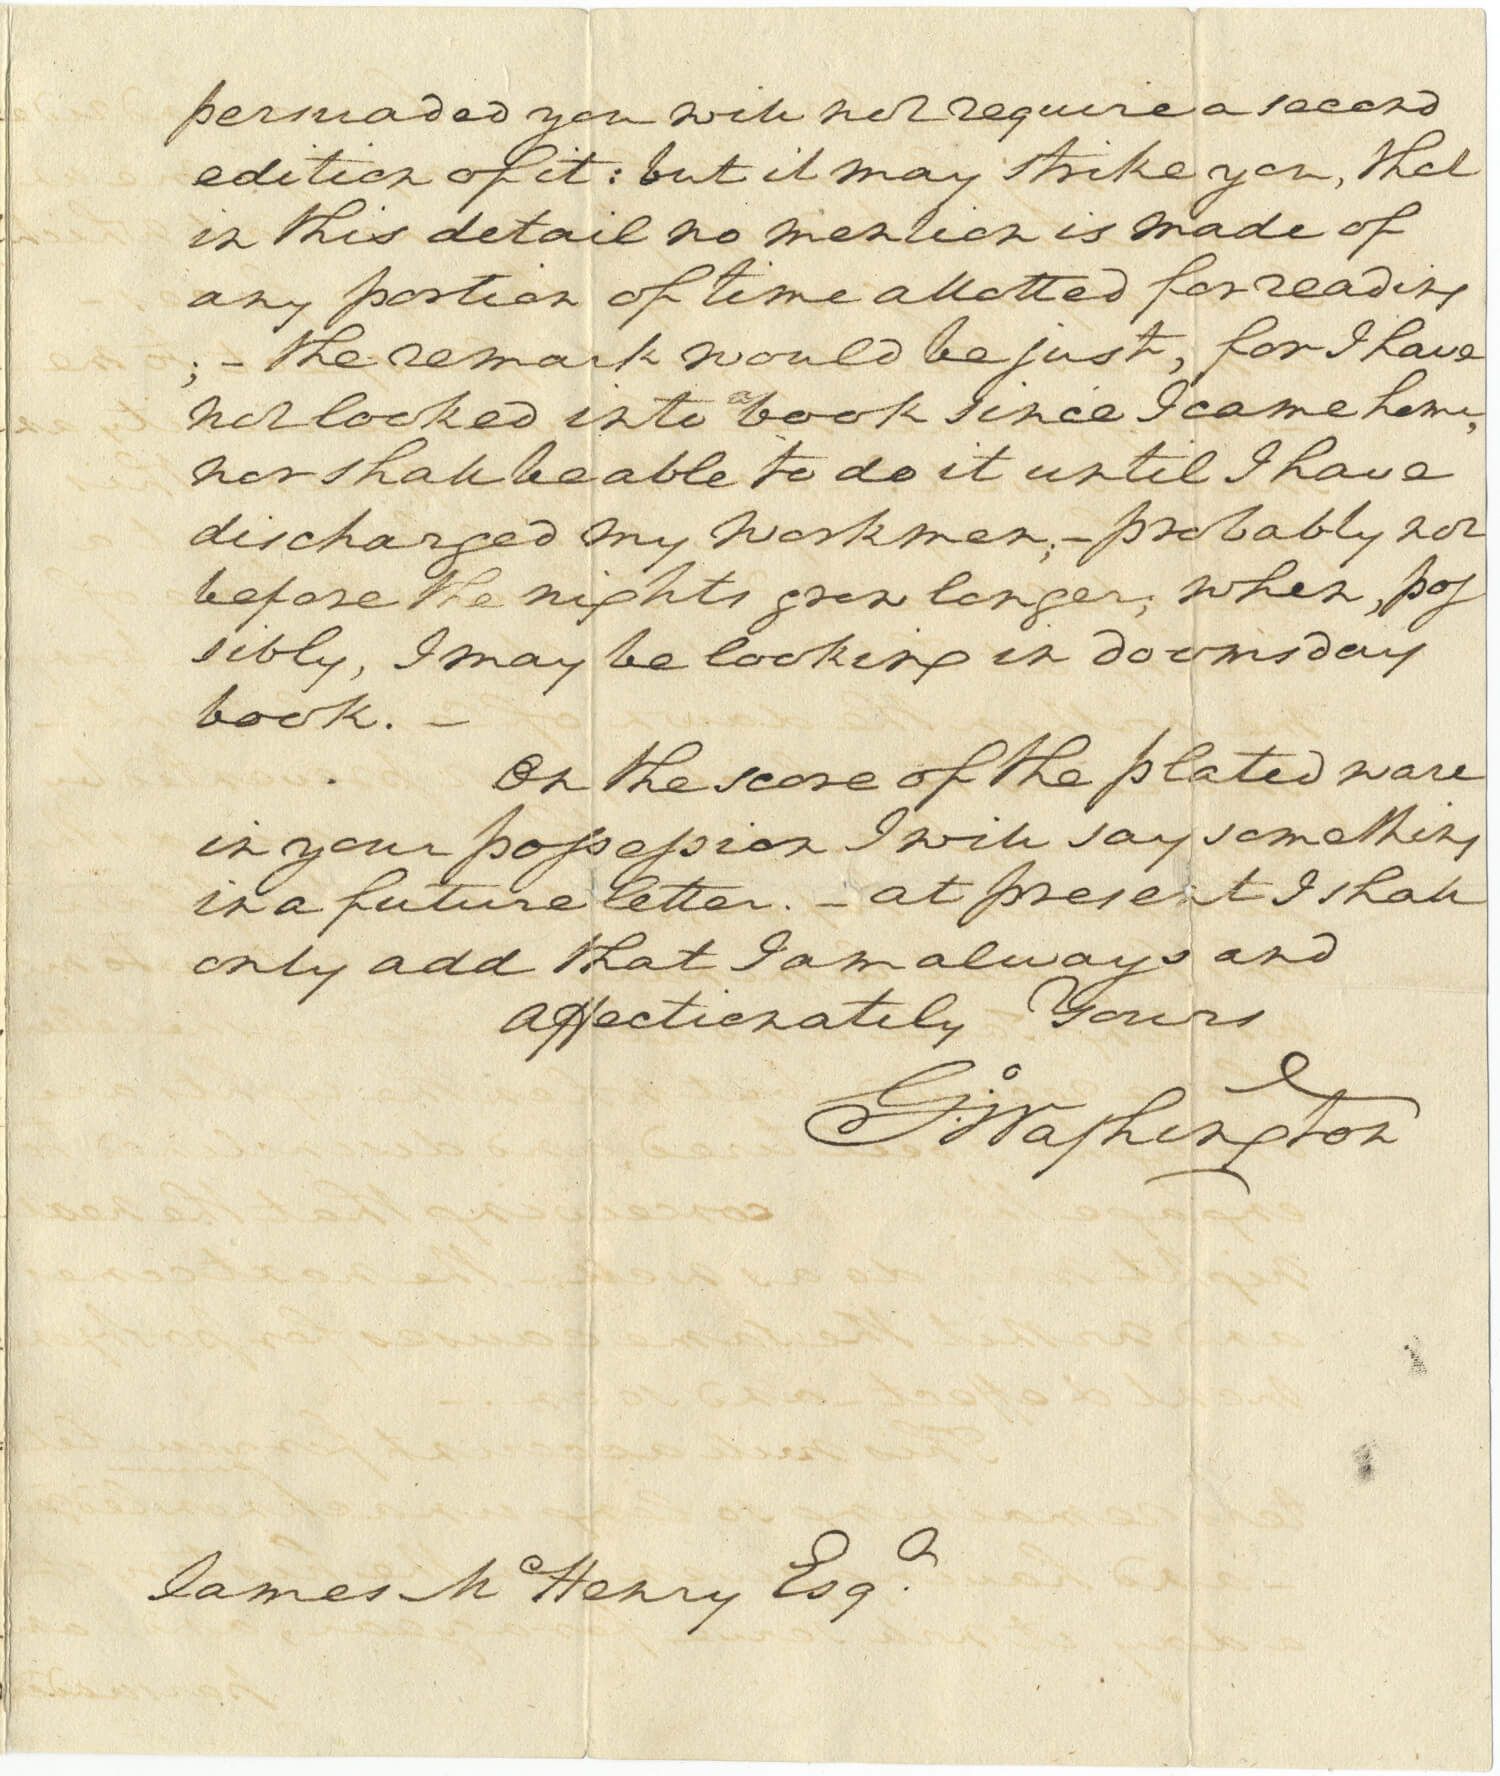 persuaded you will not require a second
edition of it: but it may strike you, that
in this detail no mention is made of
any portion of time allotted for reading
; – the remark would be just, for I have
not looked into a book since I came home,
nor shall be able to do it until I have
discharged my workmen; – probably not
before the nights grow longer; when, pos
sibly, I may be looking in doomsday
book. –
On the score of the plated ware
in your possession I will say something
in a future letter. – at present I shall
only add that I am always and
affectionately Yours
Go: Washington
James McHenry Esqr.